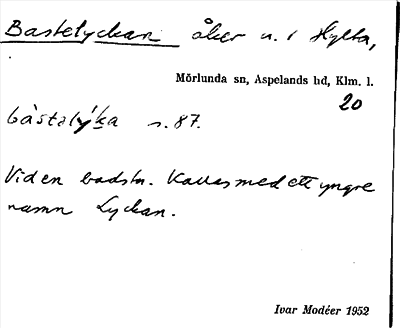 Bastelyckan åker n. 1 Hylta,
Mörlunda sn, Aspelands hd, Klm. l.
20
bàstalýka s. 87.
Vid en badstu. Kallas med ett yngre
namn Lyckan.
Ivar Modéer 1952